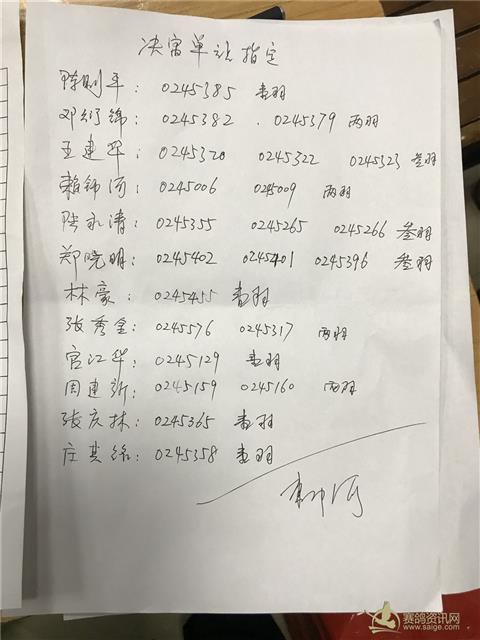 决赛单羽指定
陈则平: 0245385 壹羽
邓衍锦: 0245382 . 0245379 两羽
王建平: 0245320 0245322 0245323 叁羽
赖锦河: 0245006 0245009 两羽
陈永清: 0245355 0245265 0245266 叁羽
郑晓明: 0245402 0245401 0245396 叁羽
林豪: 0245455 壹羽
张秀全: 0245576 0245317 两羽
官江华: 0245129 壹羽
周建新: 0245159 0245160 两羽
张庆林: 0245365 壹羽
庄其铭: 0245358 壹羽
赛鸽资讯网
www.saige.com